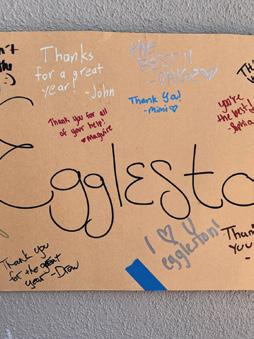 Thanks
for a great
year! -John
THE
BEST!!!
Thank You!
-mimi ♡
Thank you for all
of your help!
♥Maguire
you're
the best!
Egglesto
I ♡ U
eggleston!
Thank you
for the great
year -Drew
Than
you